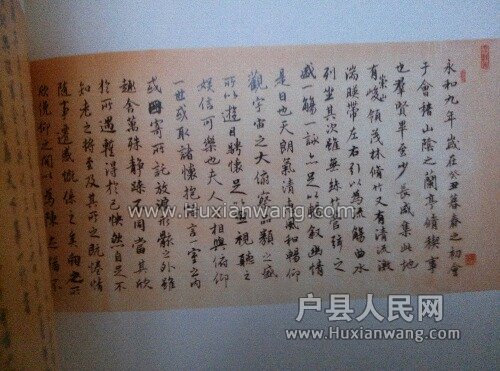 永和九年歲在癸丑暮春之初會
于會稽山陰之蘭亭脩禊事
也羣賢畢至少長咸集此地
有崇山峻領茂林脩竹又有清流激
湍暎帶左右引以為流觴曲水
列坐其次雖無絲竹管弦之
盛一觴一詠亦足以暢敘幽情
是日也天朗氣清惠風和暢仰
觀宇宙之大俯察品類之盛
所以遊目騁懷足以極視聽之
娛信可樂也夫人之相與俯仰
一世或取諸懷抱悟言一室之內
或因寄所託放浪形骸之外雖
趣舍萬殊靜躁不同當其欣
於所遇暫得於己快然自足不
知老之將至及其所之既惓情
隨事遷感慨係之矣向之所
欣俛仰之間以為陳迹猶不
www.Huxianwang.com
户县人民网
www.Huxianwang.com